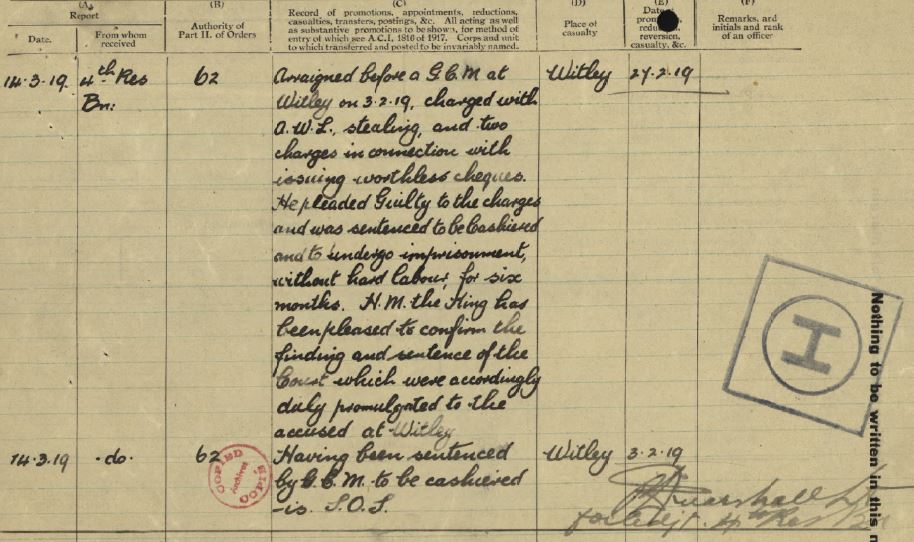 (A) Report
Date.
From whom received
(B)
Authority of Part II. of Orders
(C)
Record of promotions, appointments, reductions,
casualties, transfers, postings, &c. All acting as well
as substantive promotions to be shown, for method of
entry of which see A.C.I., 1816 of 1917. Corps and unit
to which transferred and posted to be invariably named.
(D)
Place of casualty
(E)
Date of
reversion,
casualty, &c.
(F)
Remarks, and
initials and rank
of an officer
14.3.19. 4th Res Bn: 62
Arraigned before a G.C.M at
Witley on 3.2.19, charged with
A.W.L., stealing, and two
charges in connection with
issuing worthless cheques.
He pleaded Guilty to the charges
and was sentenced to be Cashiered
and to undergo imprisonment,
without hard labour, for six
months. H.M. the King has
been pleased to confirm the
finding and sentence of the
Court which were accordingly
duly promulgated to the
accused at Witley
Witley 27.2.19
14.3.19 -do- 62
Having been sentenced
by G.C.M. to be cashiered
-is. S.O.S.
Witley 3.2.19
COPIED
Archives
COPIÉ
H
Nothing to be written in this
for Adjt. 4th Res Bn